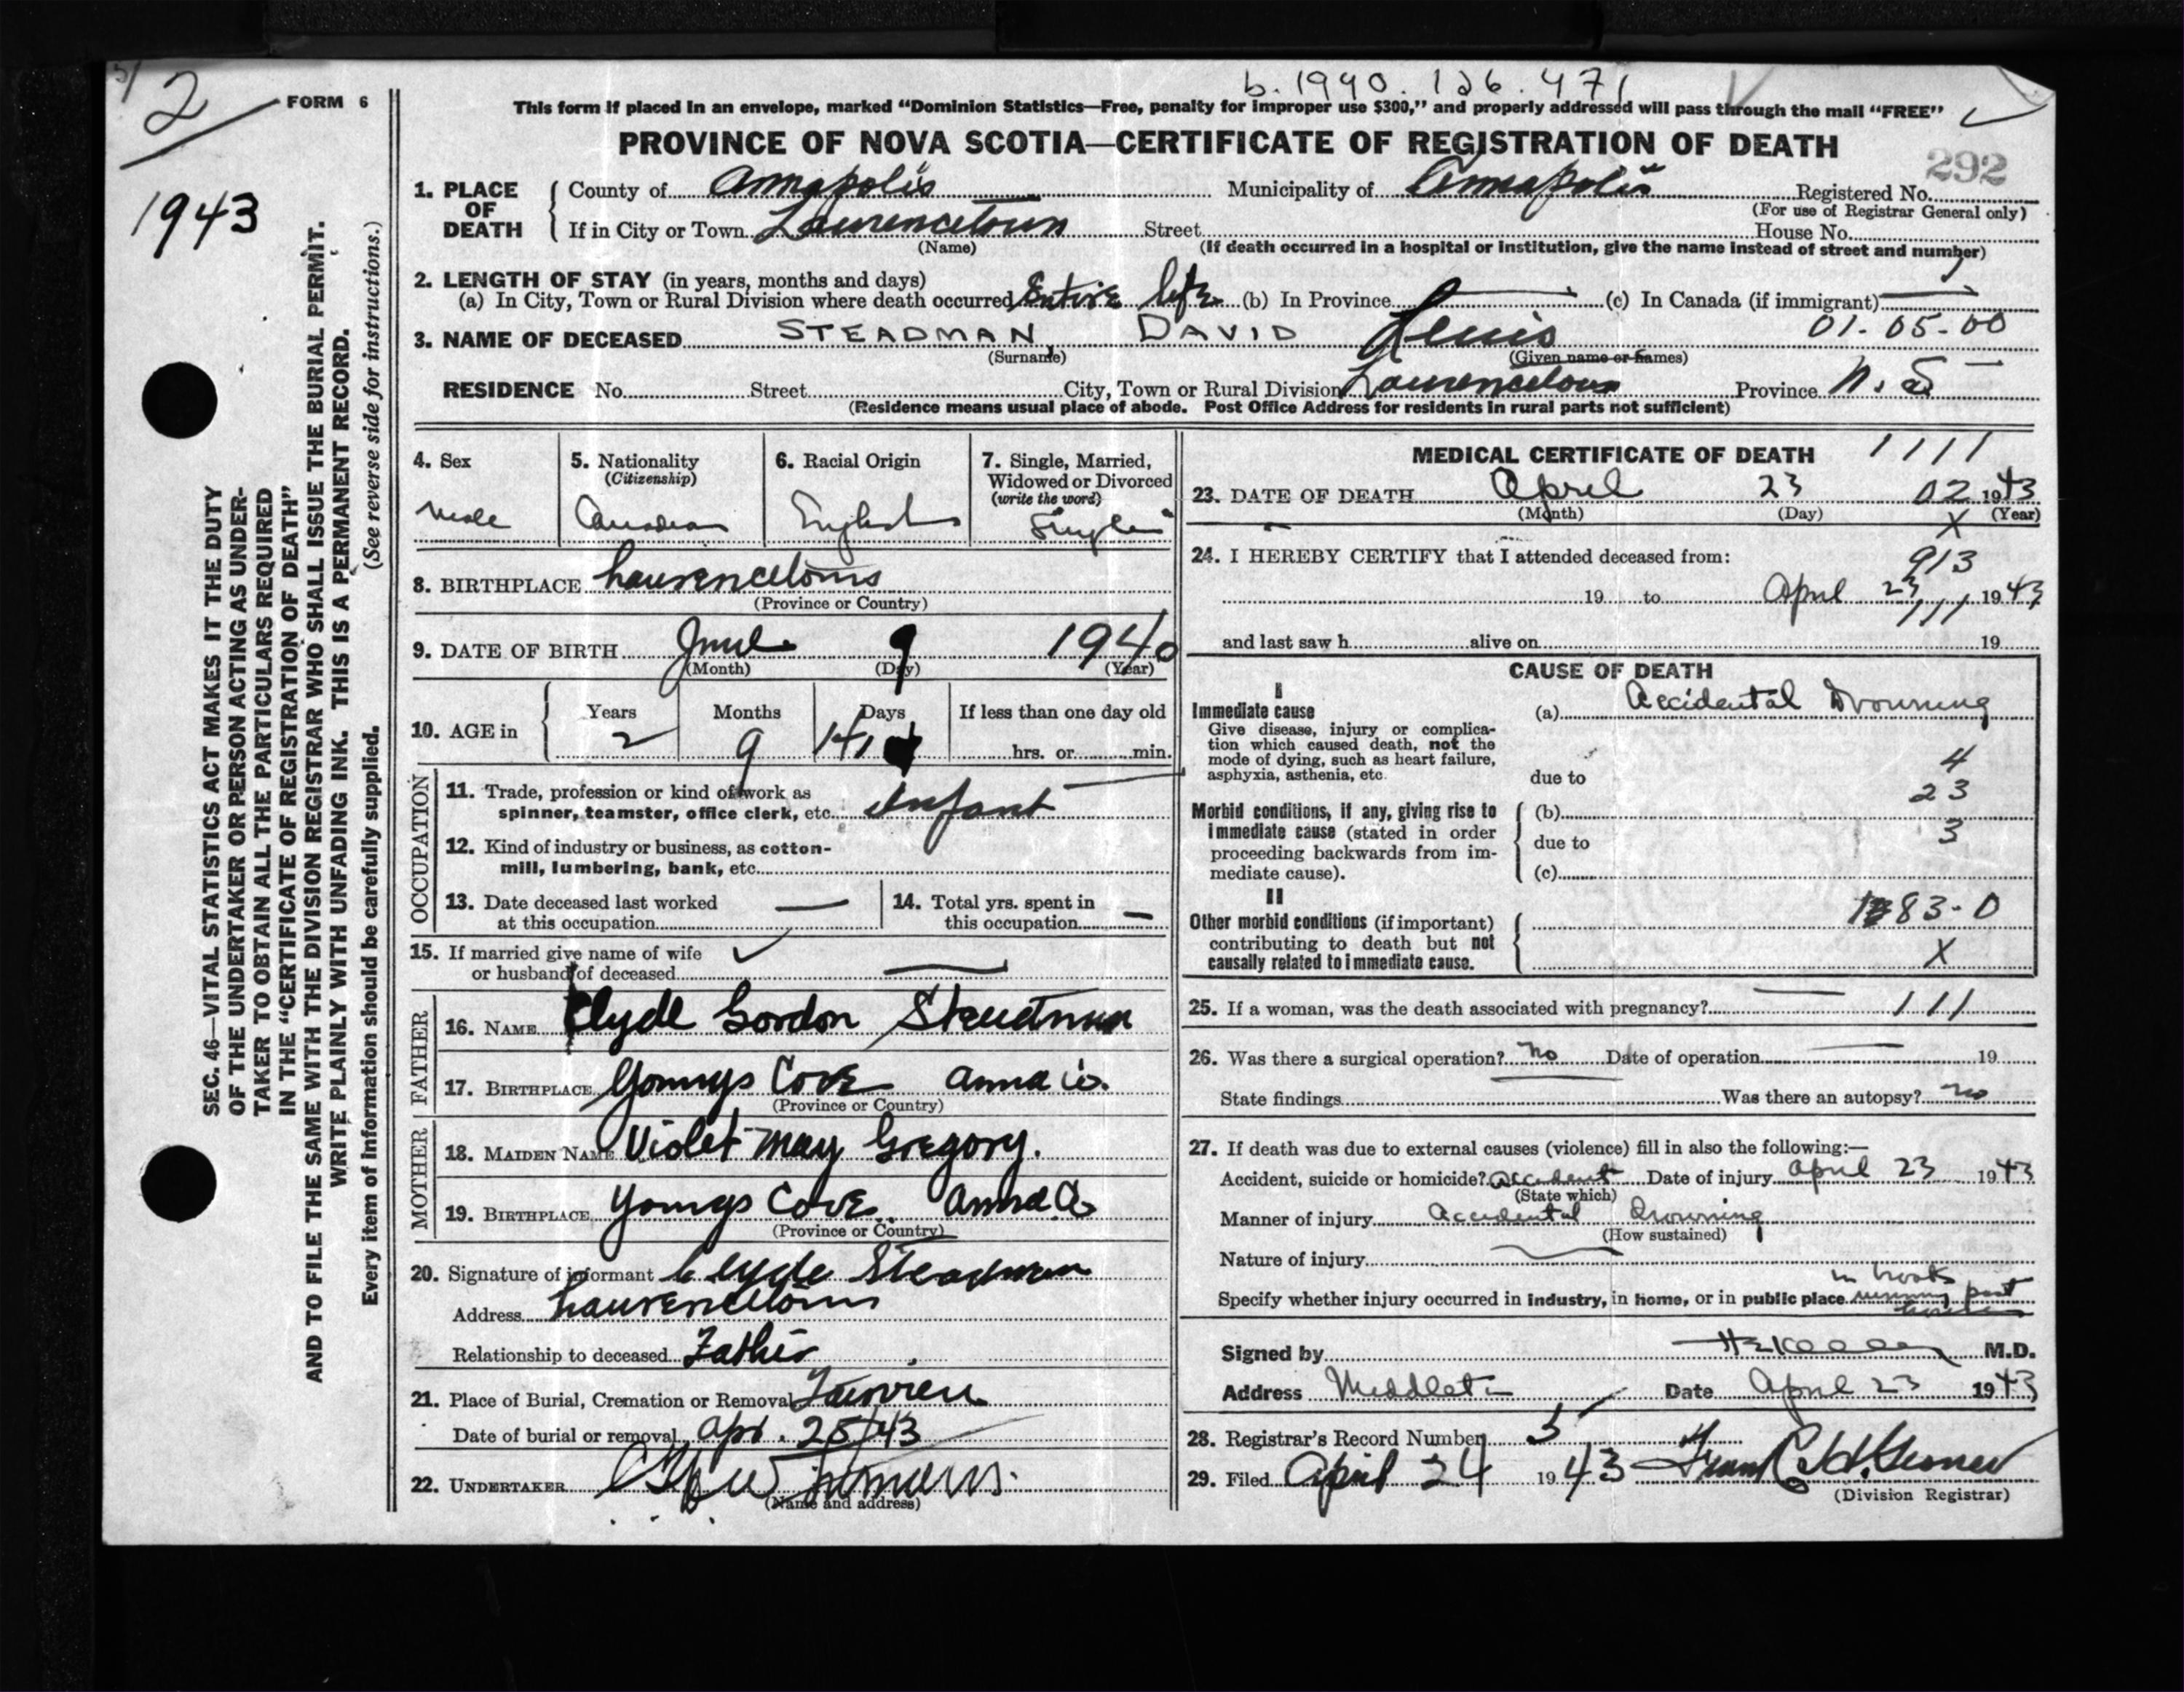 2
1943
b. 1940. 126. 471
FORM 6
This form if placed in an envelope, marked "Dominion Statistics—Free, penalty for improper use $300," and properly addressed will pass through the mail "FREE"
PROVINCE OF NOVA SCOTIA—CERTIFICATE OF REGISTRATION OF DEATH
292
1. PLACE OF DEATH
County of Annapolis Municipality of Annapolis Registered No.
(For use of Registrar General only)
If in City or Town Lawrencetown Street House No.
(Name) (If death occurred in a hospital or institution, give the name instead of street and number)
2. LENGTH OF STAY (in years, months and days)
(a) In City, Town or Rural Division where death occurred Entire life (b) In Province (c) In Canada (if immigrant)
01-05-00
3. NAME OF DECEASED STEADMAN DAVID Lewis
(Surname) (Given name or names)
RESIDENCE No. Street City, Town or Rural Division Lawrencetown Province N.S
(Residence means usual place of abode. Post Office Address for residents in rural parts not sufficient)
4. Sex
male
5. Nationality
(Citizenship)
Canadian
6. Racial Origin
English
7. Single, Married, Widowed or Divorced
(write the word)
Single
8. BIRTHPLACE Lawrencetown
(Province or Country)
9. DATE OF BIRTH June 9 1940
(Month) (Day) (Year)
10. AGE in
Years Months Days If less than one day old
2 9 14 hrs. or min.
OCCUPATION
11. Trade, profession or kind of work as
spinner, teamster, office clerk, etc. Infant
12. Kind of industry or business, as cotton-
mill, lumbering, bank, etc.
13. Date deceased last worked
at this occupation
14. Total yrs. spent in
this occupation
15. If married give name of wife
or husband of deceased
FATHER
16. NAME Clyde Gordon Steadman
17. BIRTHPLACE Youngs Cove Anna Co.
(Province or Country)
MOTHER
18. MAIDEN NAME Violet May Gregory.
19. BIRTHPLACE Youngs Cove. Anna Co
(Province or Country)
20. Signature of informant Clyde Steadman
Address Lawrencetown
Relationship to deceased Father
21. Place of Burial, Cremation or Removal
Date of burial or removal Apr. 25/43
22. UNDERTAKER
(Name and address)
MEDICAL CERTIFICATE OF DEATH
1111
23. DATE OF DEATH April 23 02 1943
(Month) (Day) (Year)
X
24. I HEREBY CERTIFY that I attended deceased from:
913
19 to April 23 1943
111
and last saw h alive on 19
CAUSE OF DEATH
I
Immediate cause
Give disease, injury or complica-
tion which caused death, not the
mode of dying, such as heart failure,
asphyxia, asthenia, etc.
(a) Accidental Drowning
due to
4
23
Morbid conditions, if any, giving rise to
immediate cause (stated in order
proceeding backwards from im-
mediate cause).
(b)
due to
3
(c)
II
Other morbid conditions (if important)
contributing to death but not
causally related to immediate cause.
83-0
X
25. If a woman, was the death associated with pregnancy? 111
26. Was there a surgical operation? No Date of operation 19
State findings Was there an autopsy? no
27. If death was due to external causes (violence) fill in also the following:—
Accident, suicide or homicide? accident Date of injury April 23 1943
(State which)
Manner of injury Accidental Drowning
(How sustained)
Nature of injury
Specify whether injury occurred in industry, in home, or in public place in brook running past house
Signed by M.D.
Address Middleton Date April 23 1943
28. Registrar's Record Number 5
29. Filed April 24 1943
(Division Registrar)
SEC. 46—VITAL STATISTICS ACT MAKES IT THE DUTY
OF THE UNDERTAKER OR PERSON ACTING AS UNDER-
TAKER TO OBTAIN ALL THE PARTICULARS REQUIRED
IN THE "CERTIFICATE OF REGISTRATION OF DEATH"
AND TO FILE THE SAME WITH THE DIVISION REGISTRAR WHO SHALL ISSUE THE BURIAL PERMIT.
WRITE PLAINLY WITH UNFADING INK. THIS IS A PERMANENT RECORD.
Every item of information should be carefully supplied. (See reverse side for instructions.)